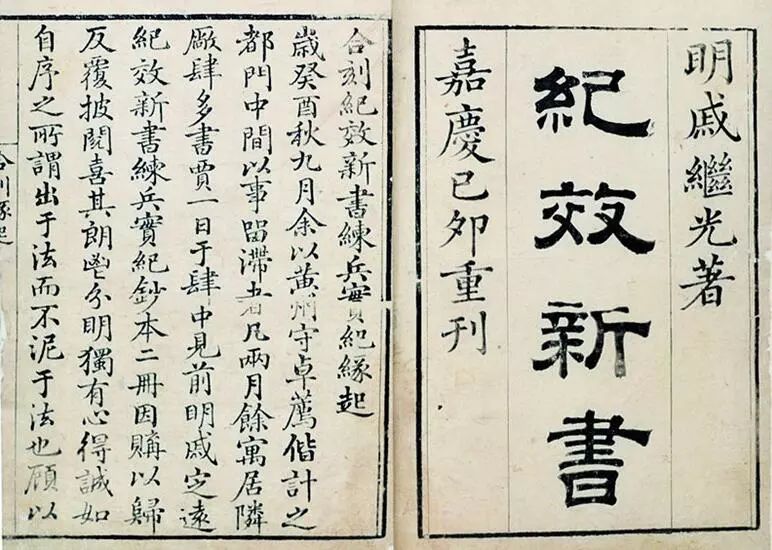 明戚繼光著
紀效新書
嘉慶己卯重刊
合刻紀效新書練兵實紀緣起
歲癸酉秋九月余以黃州守卓薦偕計之
都門中間以事畱滯者凡兩月餘寓居隣
廠肆多書賈一日于肆中見前明戚定遠
紀效新書練兵實紀鈔本二冊因購以歸
反覆披閱喜其朗鬯分明獨有心得誠如
自序之所謂出于法而不泥于法也顧以